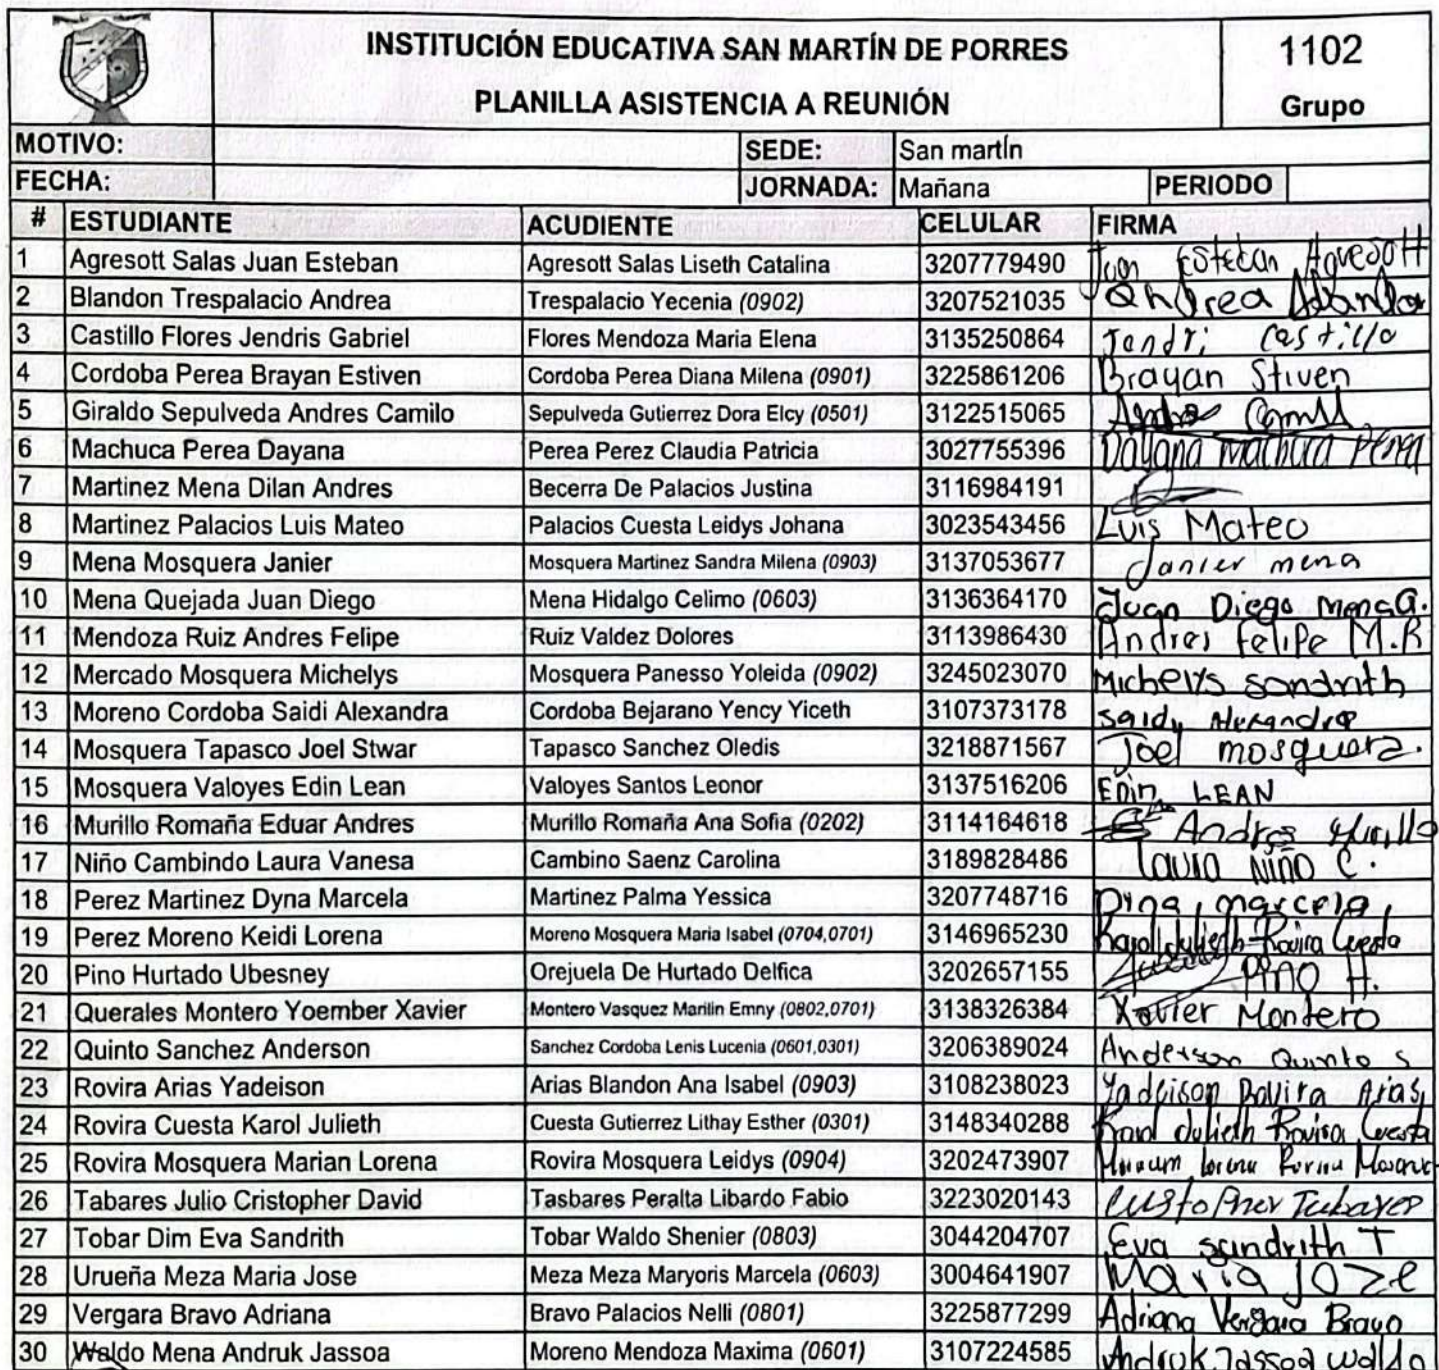 INSTITUCIÓN EDUCATIVA SAN MARTÍN DE PORRES
1102
PLANILLA ASISTENCIA A REUNIÓN
Grupo
MOTIVO: SEDE: San martín
FECHA: JORNADA: Mañana PERIODO
# ESTUDIANTE ACUDIENTE CELULAR FIRMA
1 Agresott Salas Juan Esteban Agresott Salas Liseth Catalina 3207779490 Juan Esteban Agresott
2 Blandon Trespalacio Andrea Trespalacio Yecenia (0902) 3207521035 Andrea
3 Castillo Flores Jendris Gabriel Flores Mendoza Maria Elena 3135250864 Jendri Castillo
4 Cordoba Perea Brayan Estiven Cordoba Perea Diana Milena (0901) 3225861206 Brayan Stiven
5 Giraldo Sepulveda Andres Camilo Sepulveda Gutierrez Dora Elcy (0501) 3122515065
6 Machuca Perea Dayana Perea Perez Claudia Patricia 3027755396 Dayana Machuca Perea
7 Martinez Mena Dilan Andres Becerra De Palacios Justina 3116984191
8 Martinez Palacios Luis Mateo Palacios Cuesta Leidys Johana 3023543456 Luis Mateo
9 Mena Mosquera Janier Mosquera Martinez Sandra Milena (0903) 3137053677 Janier mena
10 Mena Quejada Juan Diego Mena Hidalgo Celimo (0603) 3136364170 Juan Diego Mena Q.
11 Mendoza Ruiz Andres Felipe Ruiz Valdez Dolores 3113986430 Andres Felipe M.R
12 Mercado Mosquera Michelys Mosquera Panesso Yoleida (0902) 3245023070 Michelys Sandrith
13 Moreno Cordoba Saidi Alexandra Cordoba Bejarano Yency Yiceth 3107373178 Saidy Alexandra
14 Mosquera Tapasco Joel Stwar Tapasco Sanchez Oledis 3218871567 Joel mosquera.
15 Mosquera Valoyes Edin Lean Valoyes Santos Leonor 3137516206 EDin LEAN
16 Murillo Romaña Eduar Andres Murillo Romaña Ana Sofia (0202) 3114164618 Andres Murillo
17 Niño Cambindo Laura Vanesa Cambino Saenz Carolina 3189828486 Laura Niño C.
18 Perez Martinez Dyna Marcela Martinez Palma Yessica 3207748716 Dyna marcela
19 Perez Moreno Keidi Lorena Moreno Mosquera Maria Isabel (0704,0701) 3146965230 Karol Julieth Rovira Cuesta
20 Pino Hurtado Ubesney Orejuela De Hurtado Delfica 3202657155 Pino H.
21 Querales Montero Yoember Xavier Montero Vasquez Marilin Emny (0802,0701) 3138326384 Xavier Montero
22 Quinto Sanchez Anderson Sanchez Cordoba Lenis Lucenia (0601,0301) 3206389024 Anderson Quinto S
23 Rovira Arias Yadeison Arias Blandon Ana Isabel (0903) 3108238023 Yadeison Rovira Arias
24 Rovira Cuesta Karol Julieth Cuesta Gutierrez Lithay Esther (0301) 3148340288 Karol Julieth Rovira Cuesta
25 Rovira Mosquera Marian Lorena Rovira Mosquera Leidys (0904) 3202473907 Lorena Rovira
26 Tabares Julio Cristopher David Tasbares Peralta Libardo Fabio 3223020143 Cristopher Tabares
27 Tobar Dim Eva Sandrith Tobar Waldo Shenier (0803) 3044204707 Eva sandrith T
28 Urueña Meza Maria Jose Meza Meza Maryoris Marcela (0603) 3004641907 Maria Joze
29 Vergara Bravo Adriana Bravo Palacios Nelli (0801) 3225877299 Adriana Vergara Bravo
30 Waldo Mena Andruk Jassoa Moreno Mendoza Maxima (0601) 3107224585 Andruk Jassoa waldo